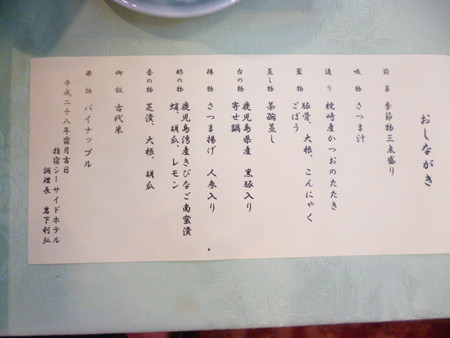 おしながき
前菜 季節物三点盛り
吸物 さつま汁
造り 枕崎産かつおのたたき
蓋物 豚骨、大根、こんにゃく
ごぼう
蒸し物 茶碗蒸し
台の物 鹿児島県産 黒豚入り
寄せ鍋
揚物 さつま揚げ 人参入り
酢の物 鹿児島湾産きびなご南蛮漬
蛸、胡瓜、レモン
香の物 芝漬、大根、胡瓜
御飯 古代米
果物 パイナップル
平成二十八年霜月吉日
指宿シーサイドホテル
調理長 岩下利弘